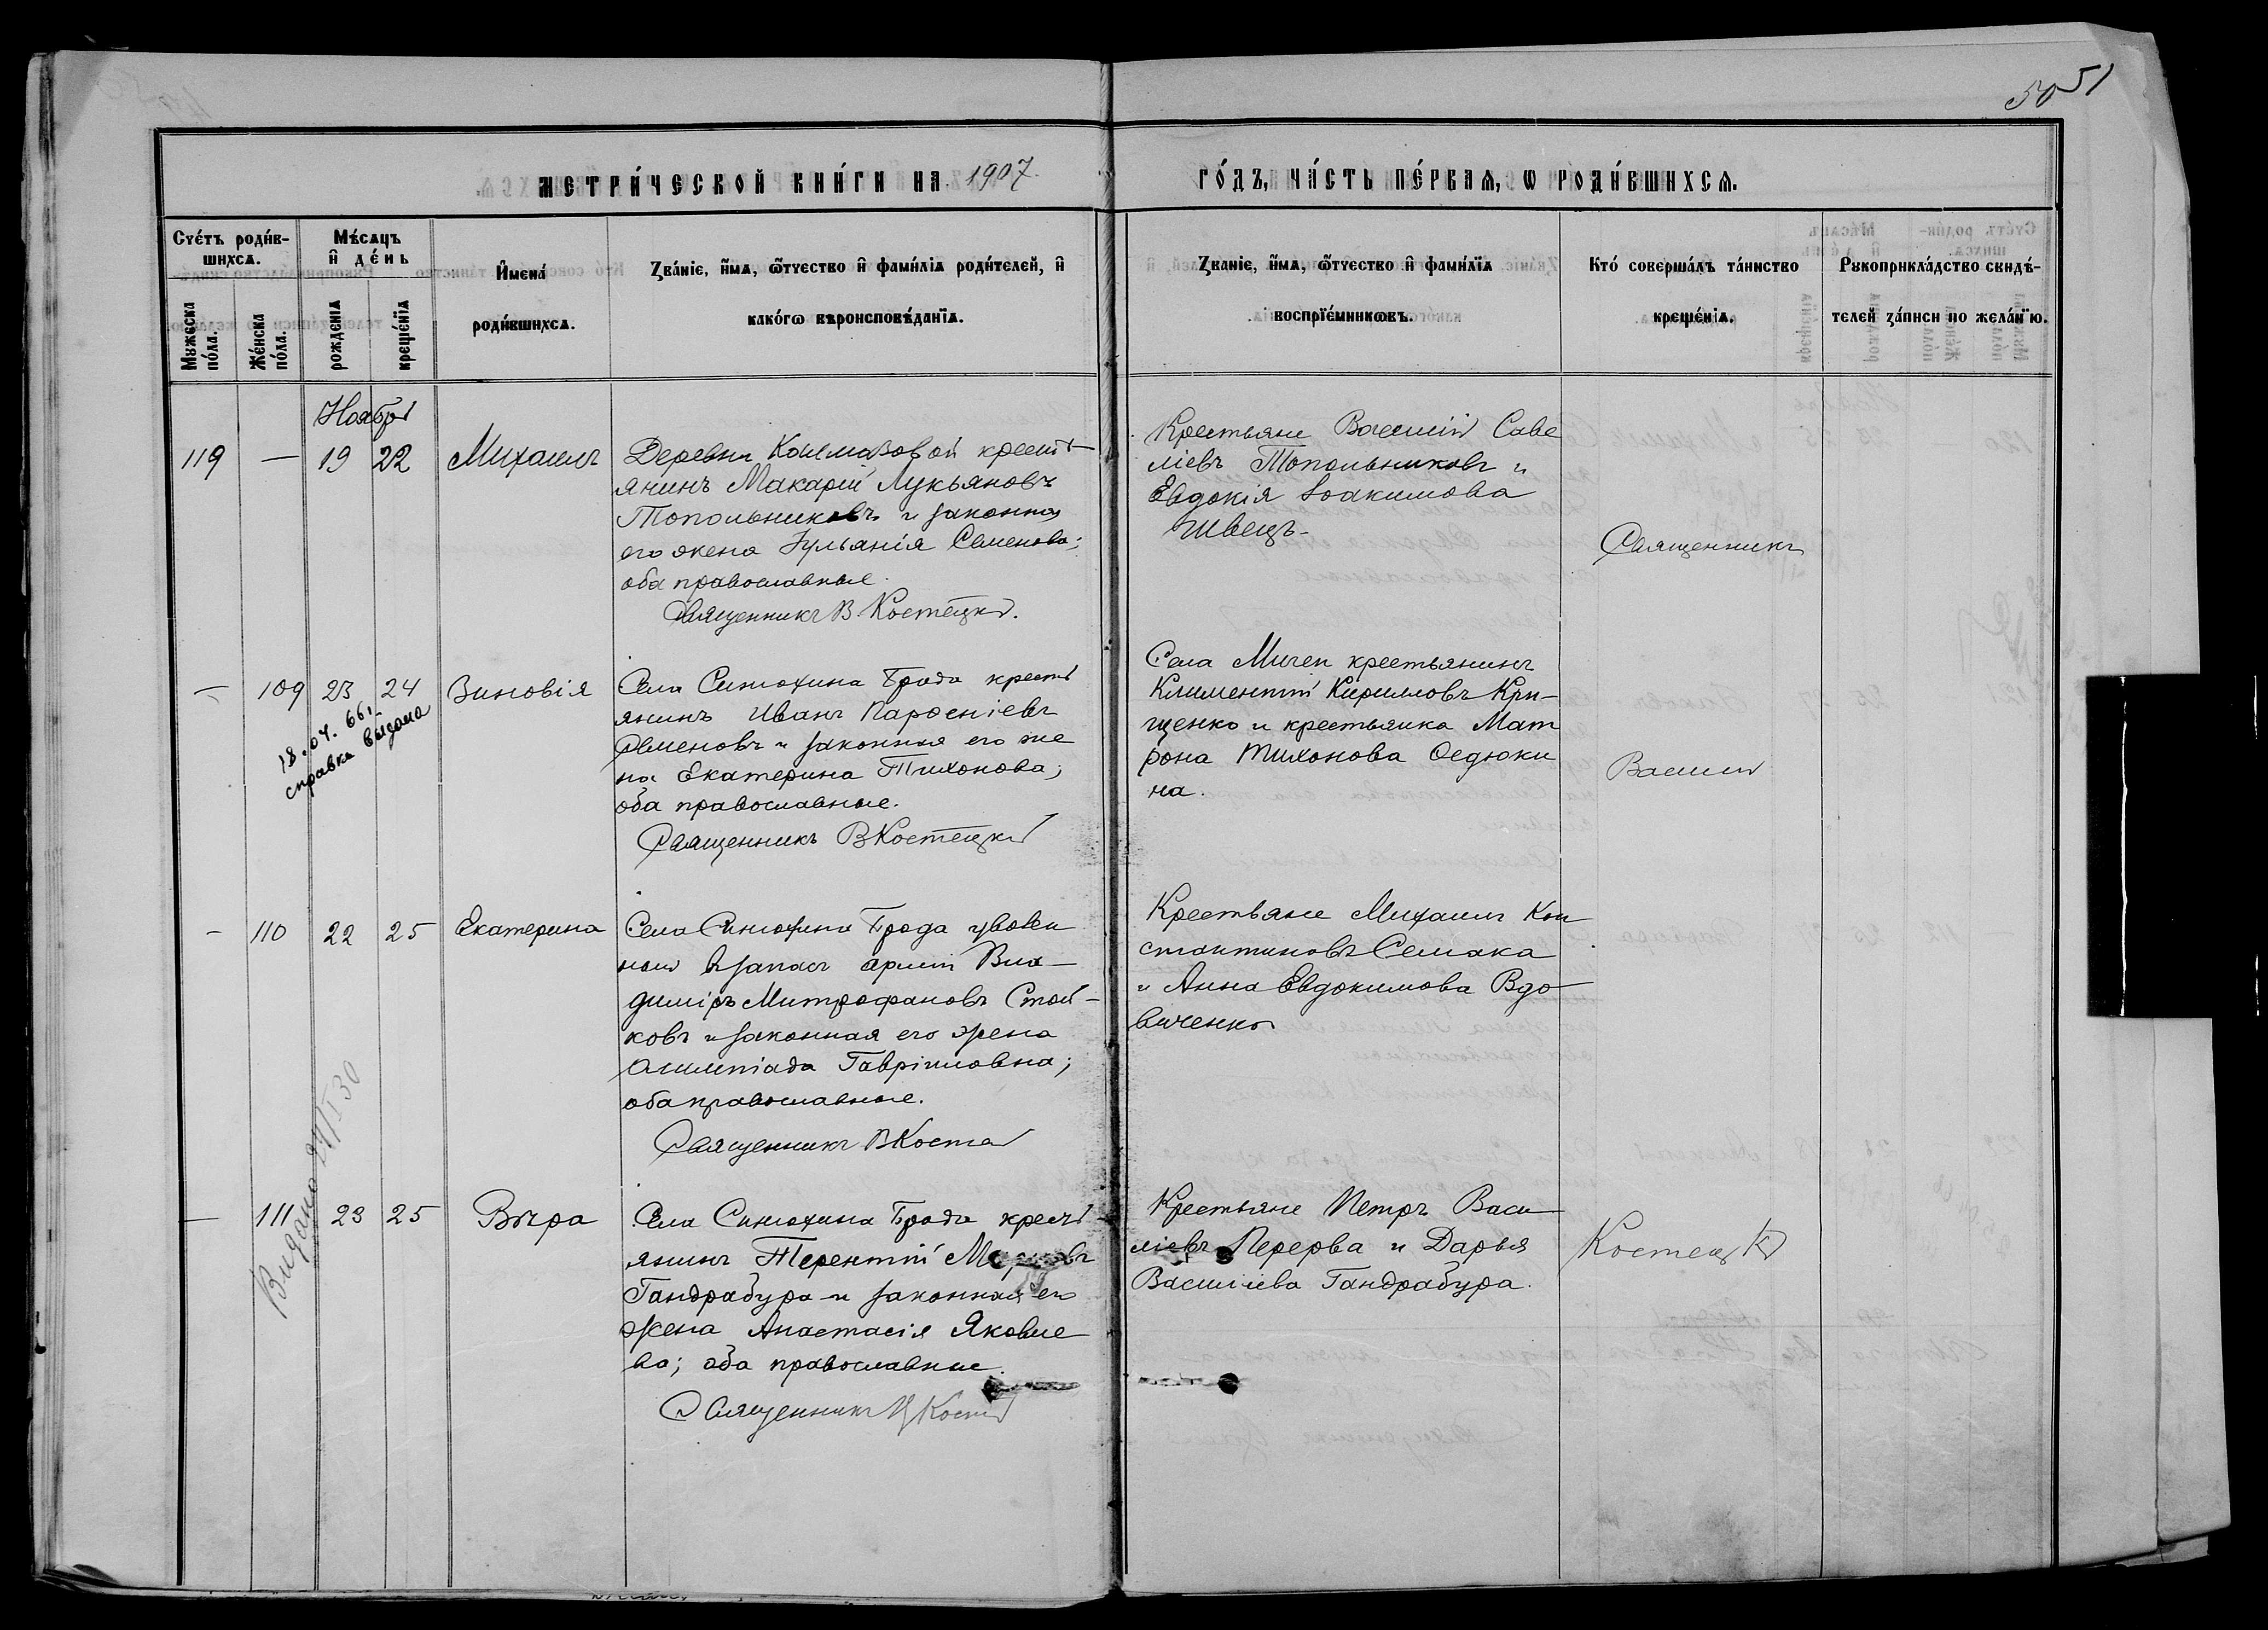 50 51
МЕТРИ́ЧЕСКОЙ КНИ́ГИ НА 1907
ГО́ДЪ, ЧА́СТЬ ПЕ́РВАѦ, Ѡ РОДИ́ВШИХСѦ.
Сче́тъ роди́в-
шихсѧ.
Мѣ́сѧцъ
и҆ де́нь
И҆мена́
роди́вшихсѧ.
Зва́нїе, и҆́мѧ, ѻ҆́тчество и҆ фами́лїѧ роди́телей, и҆
како́гѡ вѣроисповѣ́данїѧ.
Зва́нїе, и҆́мѧ, ѻ҆́тчество и҆ фами́лїѧ
воспрїе́мникѡвъ.
Кто́ соверша́лъ та́инство
креще́нїѧ.
Рꙋкоприкла́дство свидѣ́-
телей за́писи по жела́нїю.
Мꙋжеска
по́ла.
Же́нска
по́ла.
рожденїѧ
креще́нїѧ
Ноябрь
119 — 19 22 Михаилъ
Деревни крестъ-
янинъ Макарій Лукьяновъ
Топольниковъ и законная
его жена Іульянія Семенова;
оба православные.
Священникъ В. Костецкій.
Крестьяне Василій Саве
ліевъ Топольниковъ и
Евдокія Іоакимова
Швецъ-
Священникъ
— 109 23 24 Зиновія
18.04.66,
справка выдана
Села Синюхина Брода кресть
янинъ Иванъ Парѳеніевъ
Семеновъ и законная его же
на Екатерина Тихонова;
оба православные.
Священникъ В Костецкій
Села Мигеи крестьянинъ
Климентій Кирилловъ Кри-
щенко и крестьянка Мат
рона Тихонова Ѳедюки
на.
Василій
- 110 22 25 Екатерина
Села Синюхина Брода уволен
ный въ запасъ арміи Вла-
диміръ Митрофановъ Стой-
ковъ и законная его жена
Олимпіада Гавріиловна;
оба православные.
Священникъ В Костец
Крестьяне Михаилъ Кон
стантиновъ Семака
и Анна Евдокимова Вдо
виченко
Видано 27/I 30
— 111 23 25 Вѣра
Села Синюхина Брода кресть-
янинъ Терентій
Гандрабура и законная его
жена Анастасія Яковле
ва; оба православные.
Священникъ В Костец
Крестьяне Петръ Васи
ліевъ Перерва и Дарья
Васильева Гандрабура.
Костецкій